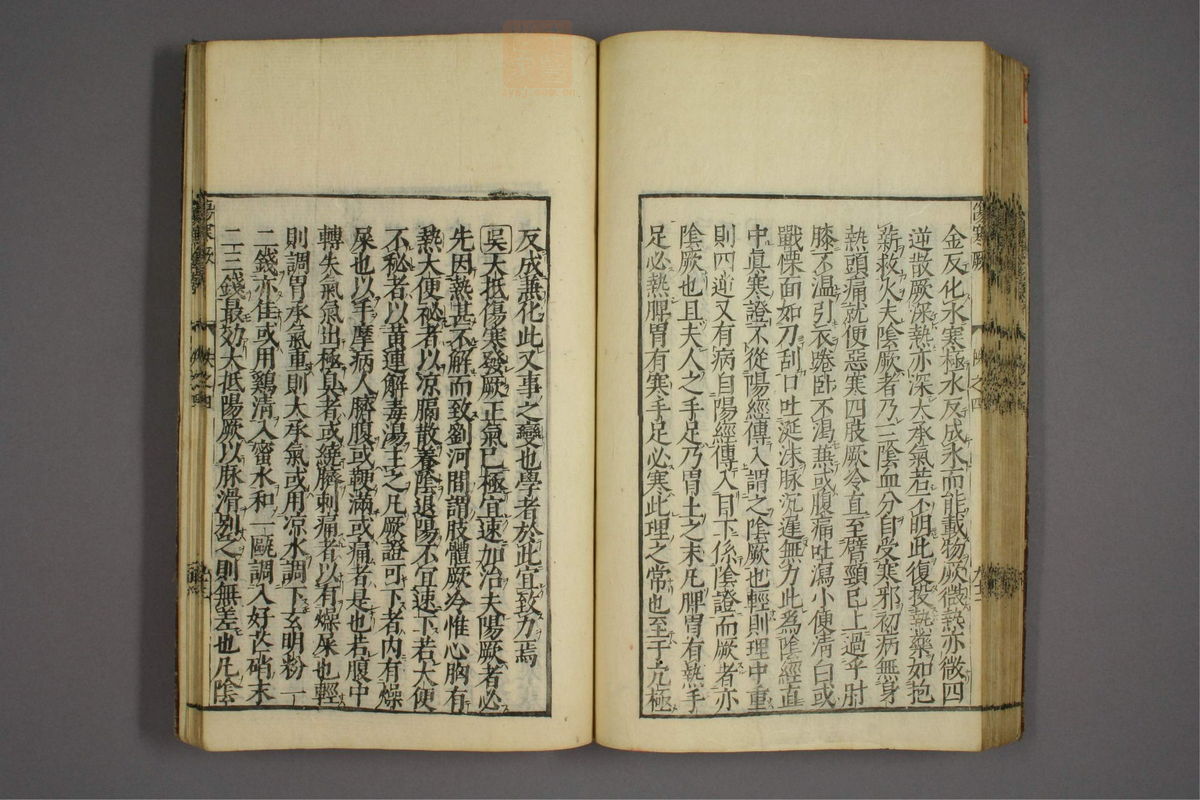 金反化水寒極水反成氷而能載物厥微熱亦微四
逆散厥深熱亦深大承氣若不明此復投熱藥如抱
薪救火夫陰厥者乃三陰血分自受寒邪初病無身
熱頭痛就便惡寒四肢厥冷直至臂頸已上過乎肘
膝不溫引衣踡卧不渴蒹或腹痛吐瀉小便清白或
戰慄面如刀刮口吐涎沫脉沉遲無力此爲陰經直
中眞寒證不從陽經傳入謂之陰厥也輕則理中重
則四逆又有病自陽經傳入目下係陰證而厥者亦
陰厥也且夫人之手足乃胃土之末凡脾胃有熱手
足必熱脾胃有寒手足必寒此理之常也至于亢極
反成兼化此又事之變也學者於此宜致力焉
吳大抵傷寒發厥正氣已極宜速加治夫陽厥者必
先因熱甚不解而致劉河間謂肢體厥冷惟心胸有
熱大便秘者以凉膈散養陰退陽不宜速下若大便
不秘者以黄連解毒湯主之凡厥證可下者內有燥
屎也以手摩病人臍腹或鞕滿或痛者是也若腹中
轉失氣氣出極臭者或繞臍刺痛者以有燥屎也輕
則調胃承氣重則大承氣或用凉水調下玄明粉一
二錢亦佳或用鷄清入蜜水和一甌調入好芒硝末
二三錢最効大抵陽厥以脉滑别之則無差也凡陰
傷寒厥
卷之四